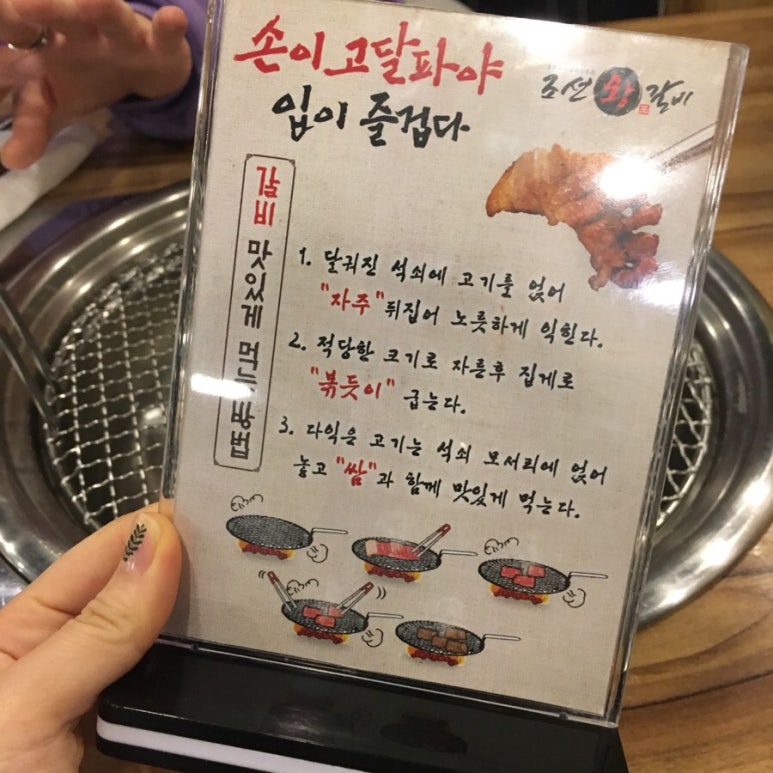 손이 고달파야
입이 즐겁다
조선 왕 갈비
갈비 맛있게 먹는 방법
1. 달궈진 석쇠에 고기를 얹어
"자주" 뒤집어 노릇하게 익힌다.
2. 적당한 크기로 자른후 집게로
"볶듯이" 굽는다.
3. 다익은 고기는 석쇠 모서리에 얹어
놓고 "쌈"과 함께 맛있게 먹는다.